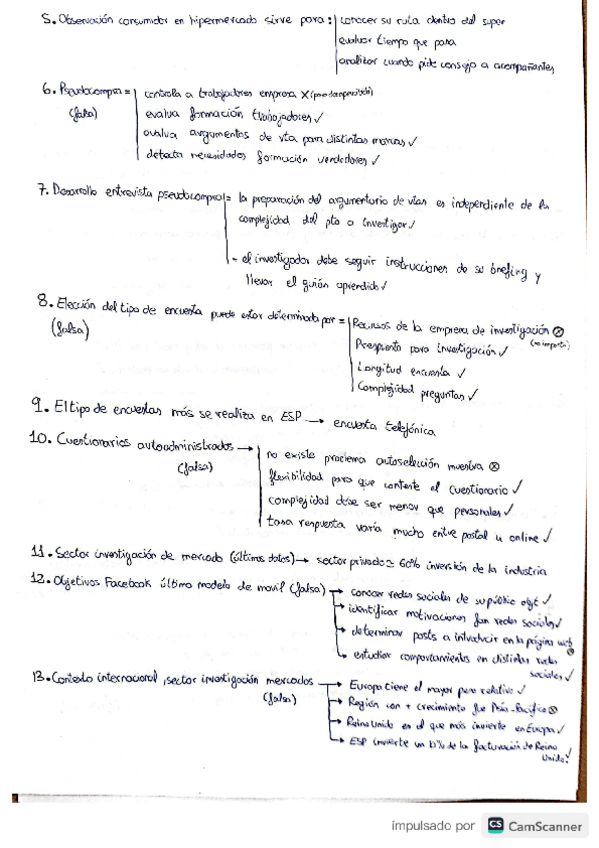 5. Observación consumidor en hipermercado sirve para: | conocer su ruta dentro del super
evaluar tiempo que pasa
analizar cuando pide consejo a acompañantes
6. Pseudocompra = | controla a trabajadores empresa X
(falsa) evalua formación trabajadores ✓
evalua argumentos de vta para distintas marcas ✓
detecta necesidades formación vendedores ✓
7. Desarrollo entrevista pseudocompra = la preparación del argumentario de vtas es independiente de la
complejidad del pto a investigar ✓
- el investigador debe seguir instrucciones de su briefing y
llevar el guión aprendido ✓
8. Elección del tipo de encuesta puede estar determinada por = | Recursos de la empresa de investigación ⊗
(falsa) Presupuesto para investigación ✓ (no importa)
Longitud encuesta ✓
Complejidad preguntas ✓
9. El tipo de encuestas más se realiza en ESP → encuesta telefónica
10. Cuestionarios autoadministrados → no existe problema autoselección muestra ⊗
(falsa) flexibilidad para que conteste el cuestionario ✓
complejidad debe ser menor que personales ✓
tasa respuesta varía mucho entre postal u online ✓
11. Sector investigación de mercado (últimos datos) → sector privado ≃ 60% inversión de la industria
12. Objetivos Facebook último modelo de movil (falsa) → conocer redes sociales de su público objt ✓
→ identificar motivaciones fan redes sociales ✓
→ determinar posts a introducir en la página web ⊗
→ estudiar comportamientos en distintas redes
sociales ✓
13. Contexto internacional, sector investigación mercados → Europa tiene el mayor peso relativo ✓
(falsa) → Región con + crecimiento fue Asia-Pacífico ⊗
→ Reino Unido es el que más invierte en Europa ✓
→ ESP invierte un % de la facturación de Reino
Unido ✓
impulsado por CS CamScanner